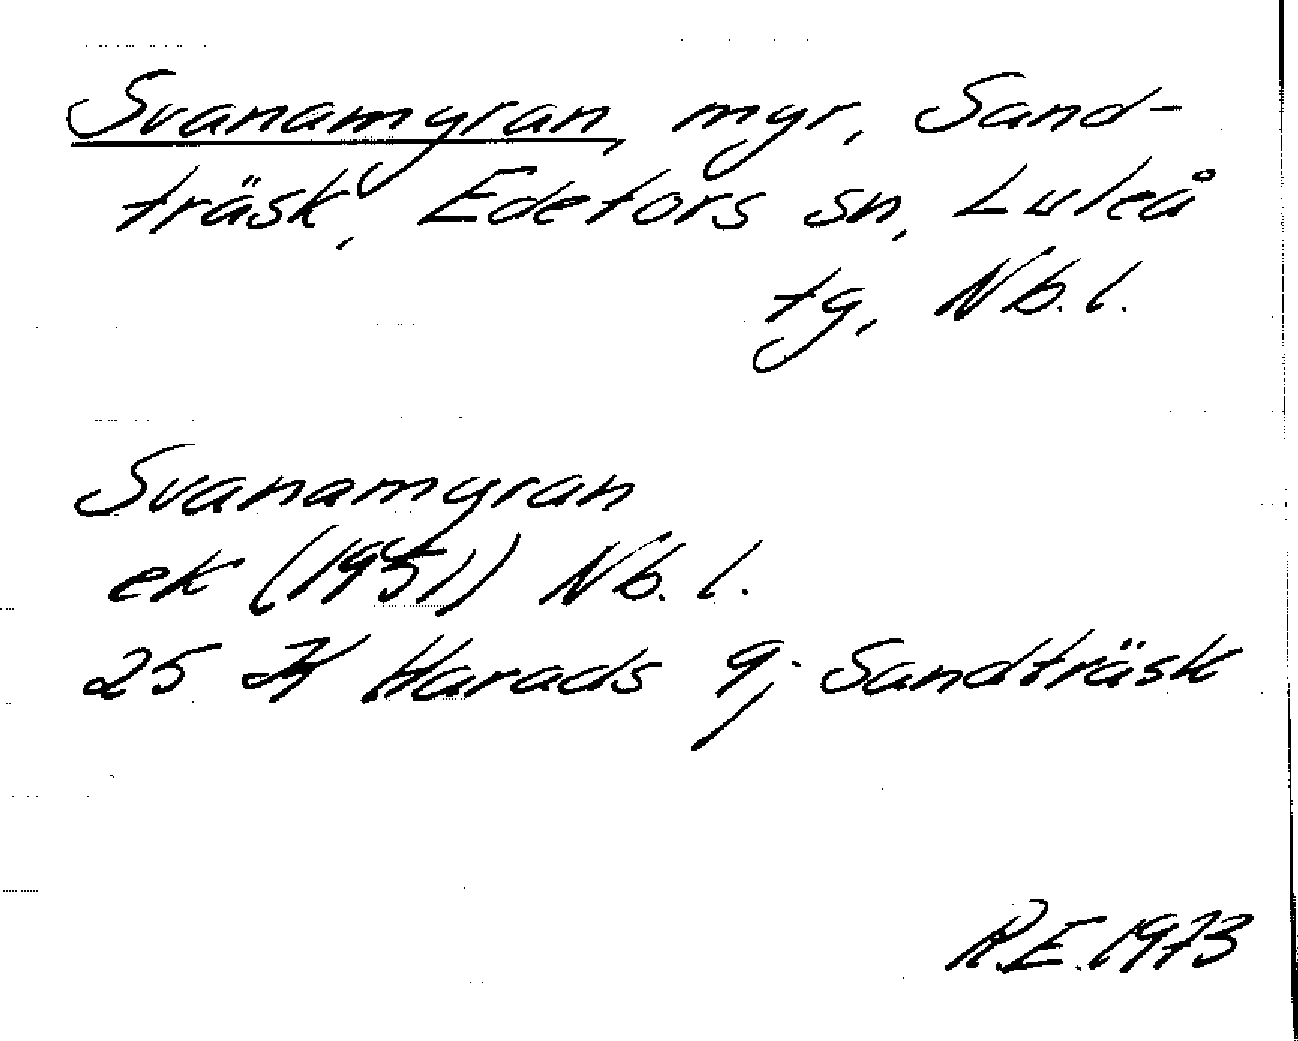 Svanamyran, myr, Sand-
träsk, Edefors sn, Luleå
tg, Nb.l.
Svanamyran
ek (1951) Nb.l.
25 H Harads 9; Sandträsk
R.E. 1973